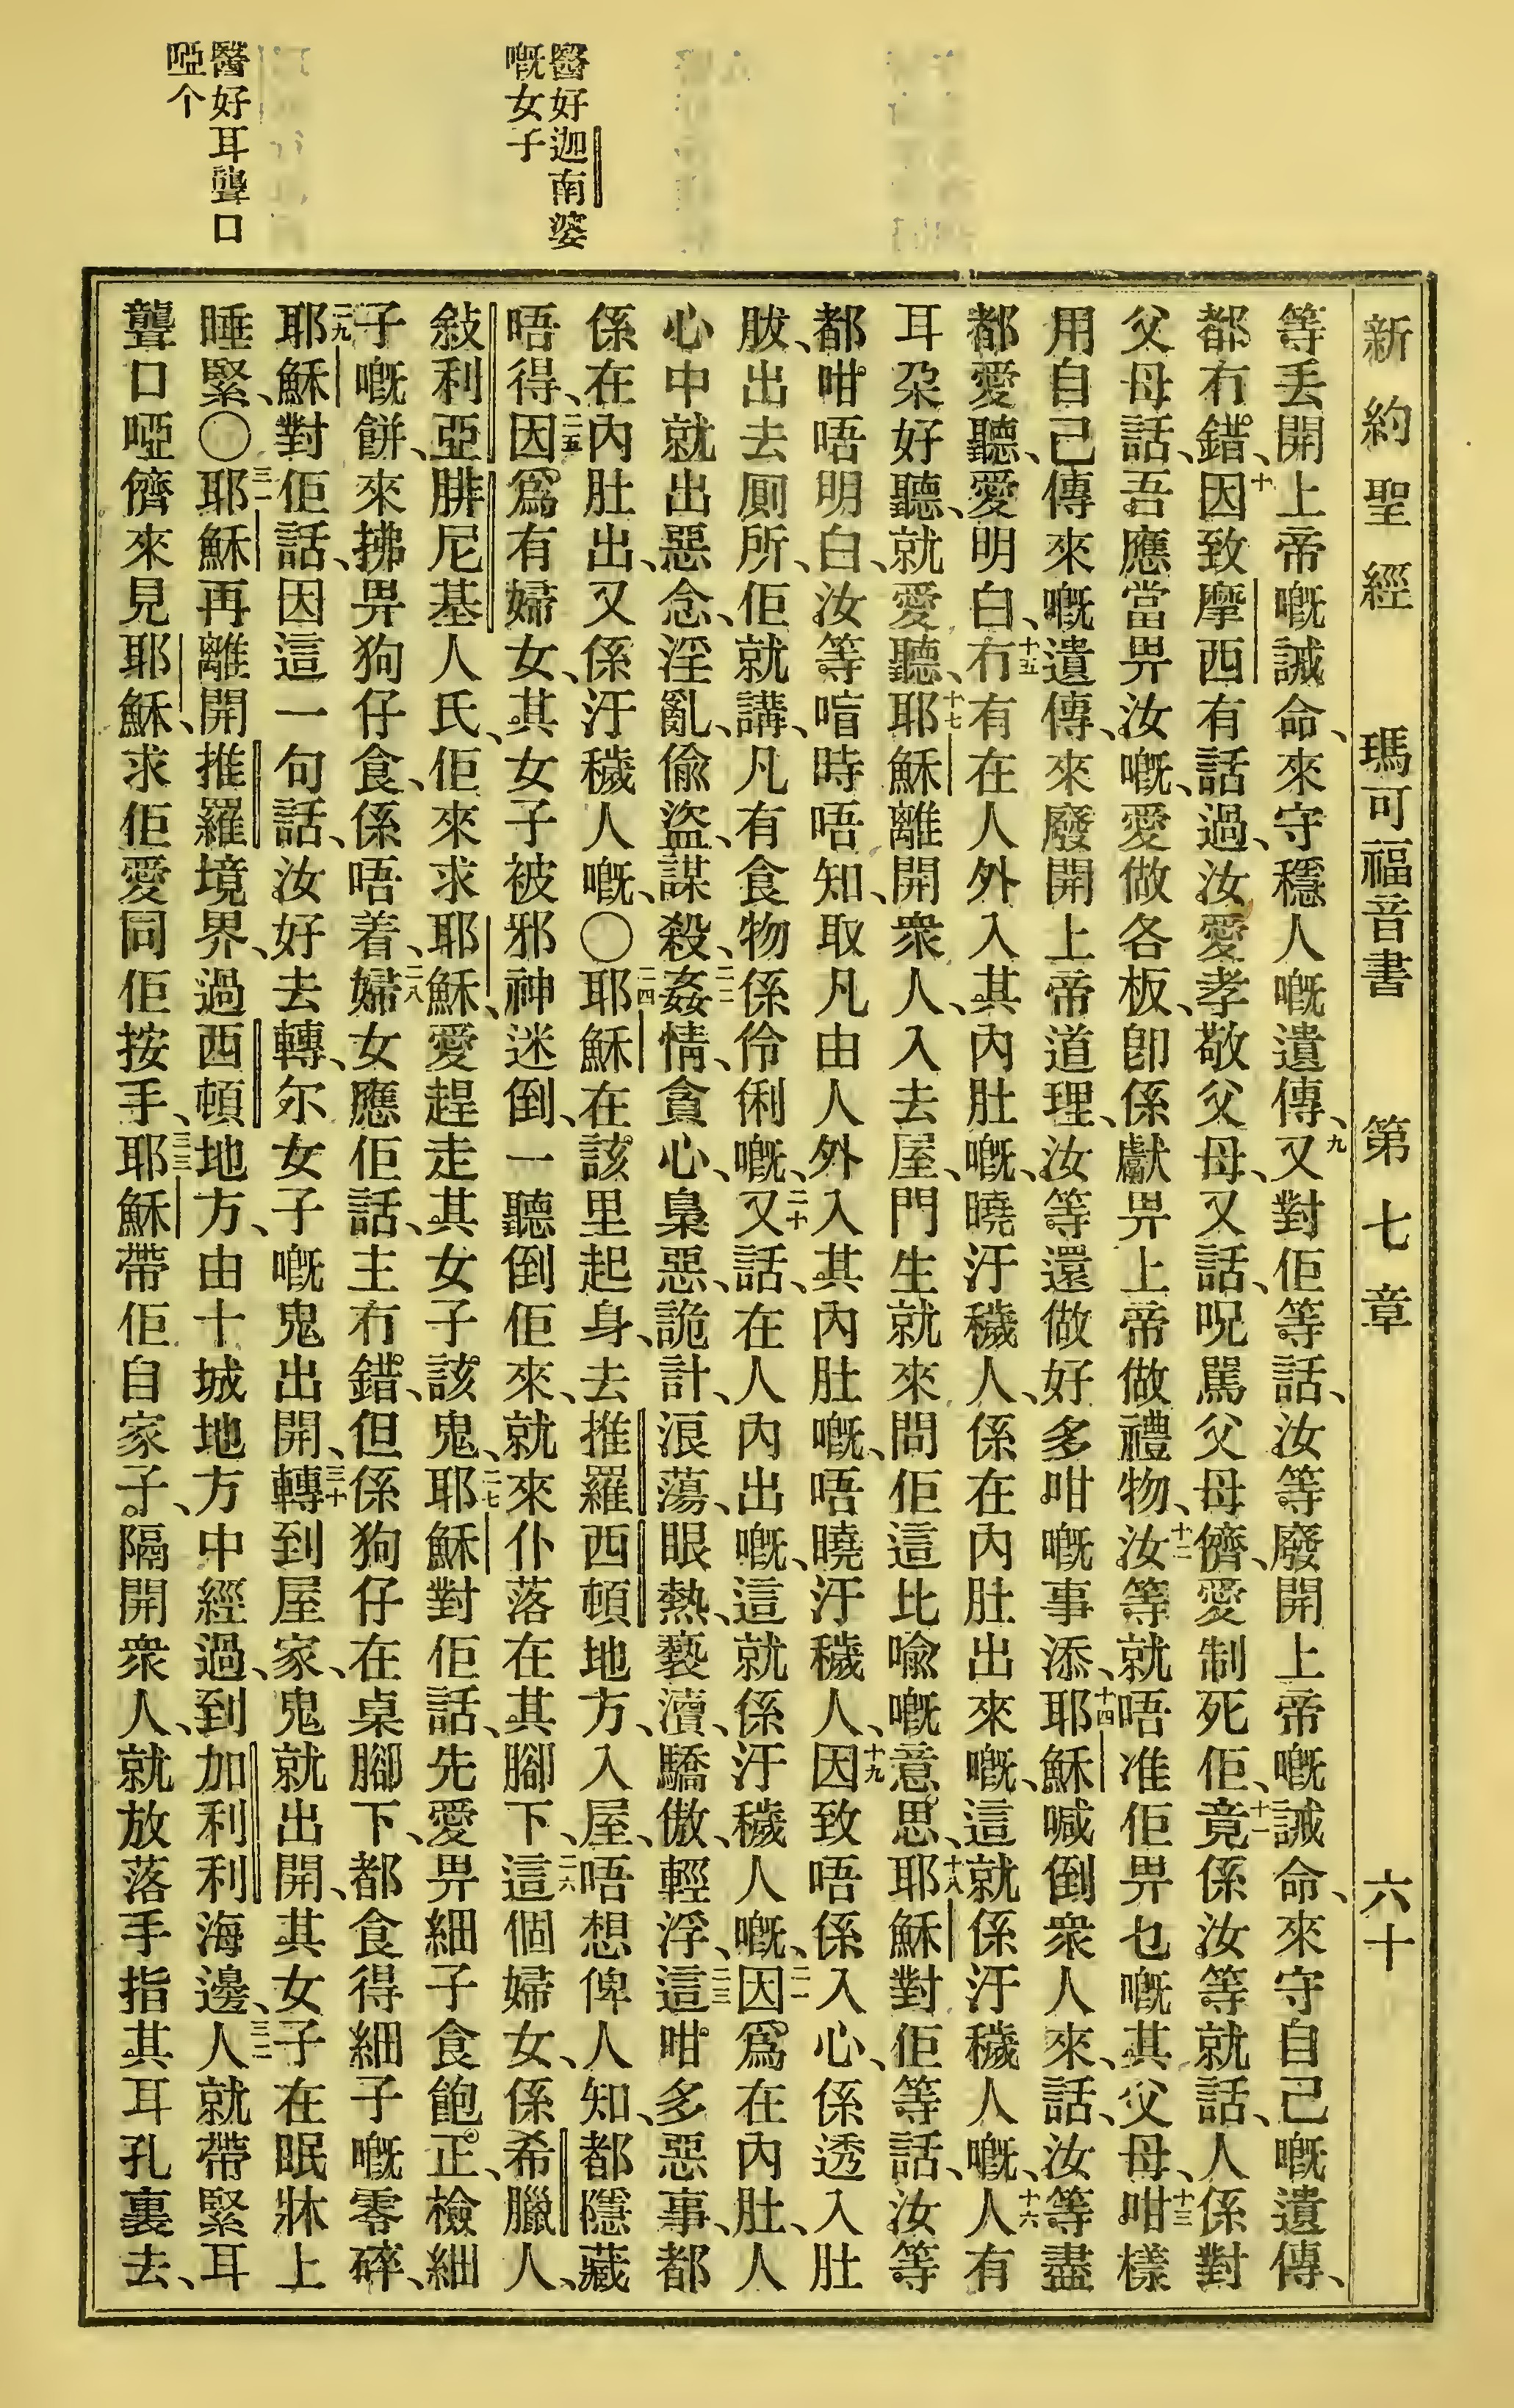 新約聖經 瑪可福音書 第七章 六十
等丢開上帝嘅誡命、來守穩人嘅遺傳、九又對佢等話、汝等廢開上帝嘅誡命、來守自己嘅遺傳、
都冇錯、十因致摩西有話過、汝愛孝敬父母、又話、呪駡父母儕、愛制死佢、十一竟係汝等就話、人係對
父母話、吾應當畀汝嘅、愛做各板、卽係獻畀上帝做禮物、十二汝等就唔准佢畀乜嘅其父母、十三咁樣
用自己傳來嘅遺傳、來廢開上帝道理、汝等還做好多咁嘅事添、十四耶穌喊倒衆人來、話、汝等盡
都愛聽、愛明白、十五冇有在人外入其內肚嘅、曉汙穢人、係在內肚出來嘅、這就係汙穢人嘅、十六人有
耳朶好聽、就愛聽、十七耶穌離開衆人、入去屋、門生就來問佢這比喩嘅意思、十八耶穌對佢等話、汝等
都咁唔明白、汝等喑時唔知、取凡由人外入其內肚嘅、唔曉汙穢人、十九因致唔係入心、係透入肚
胈、出去厠所、佢就講、凡有食物係伶俐嘅、二十又話、在人內出嘅、這就係汙穢人嘅、二一因爲在內肚、人
心中就出惡念、淫亂、偸盜、謀殺、二二姦情、貪心、梟惡、詭計、浪蕩、眼熱、褻瀆、驕傲、輕浮、二三這咁多惡事、都
係在內肚出、又係汙穢人嘅、〇二四耶穌在該里起身、去推羅西頓地方、入屋、唔想俾人知、都隱藏
唔得、二五因爲有婦女、其女子被邪神迷倒、一聽倒佢來、就來仆落在其腳下、二六這個婦女、係希臘人、
敍利亞腓尼基人氏、佢來求耶穌、愛趕走其女子該鬼、二七耶穌對佢話、先愛畀細子食飽正、檢細
子嘅餅、來拂畀狗仔食、係唔着、二八婦女應佢話、主冇錯、但係狗仔在桌腳下、都食得細子嘅零碎、
二九耶穌對佢話、因這一句話、汝好去轉、尔女子嘅鬼出開、三十轉到屋家、鬼就出開、其女子在眠牀上
睡緊、〇三一耶穌再離開推羅境界、過西頓地方、由十城地方中經過、到加利利海邊、三二人就帶緊耳
聾口啞儕來見耶穌、求佢愛同佢按手、三三耶穌帶佢自家子、隔開衆人、就放落手指其耳孔裏去、
醫好迦南婆
嘅女子
醫好耳聾口
啞个